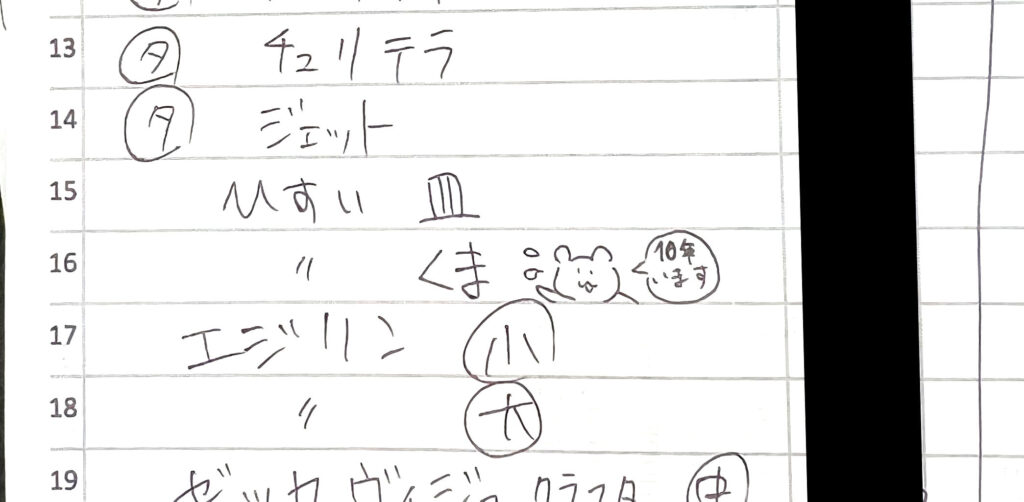 13 タ チュリテラ
14 タ ジェット
15 ひすい 皿
16 〃 くま 10年います
17 エジリン 小
18 〃 大
19 ゼッカ ヴィジョ クラフタ 中